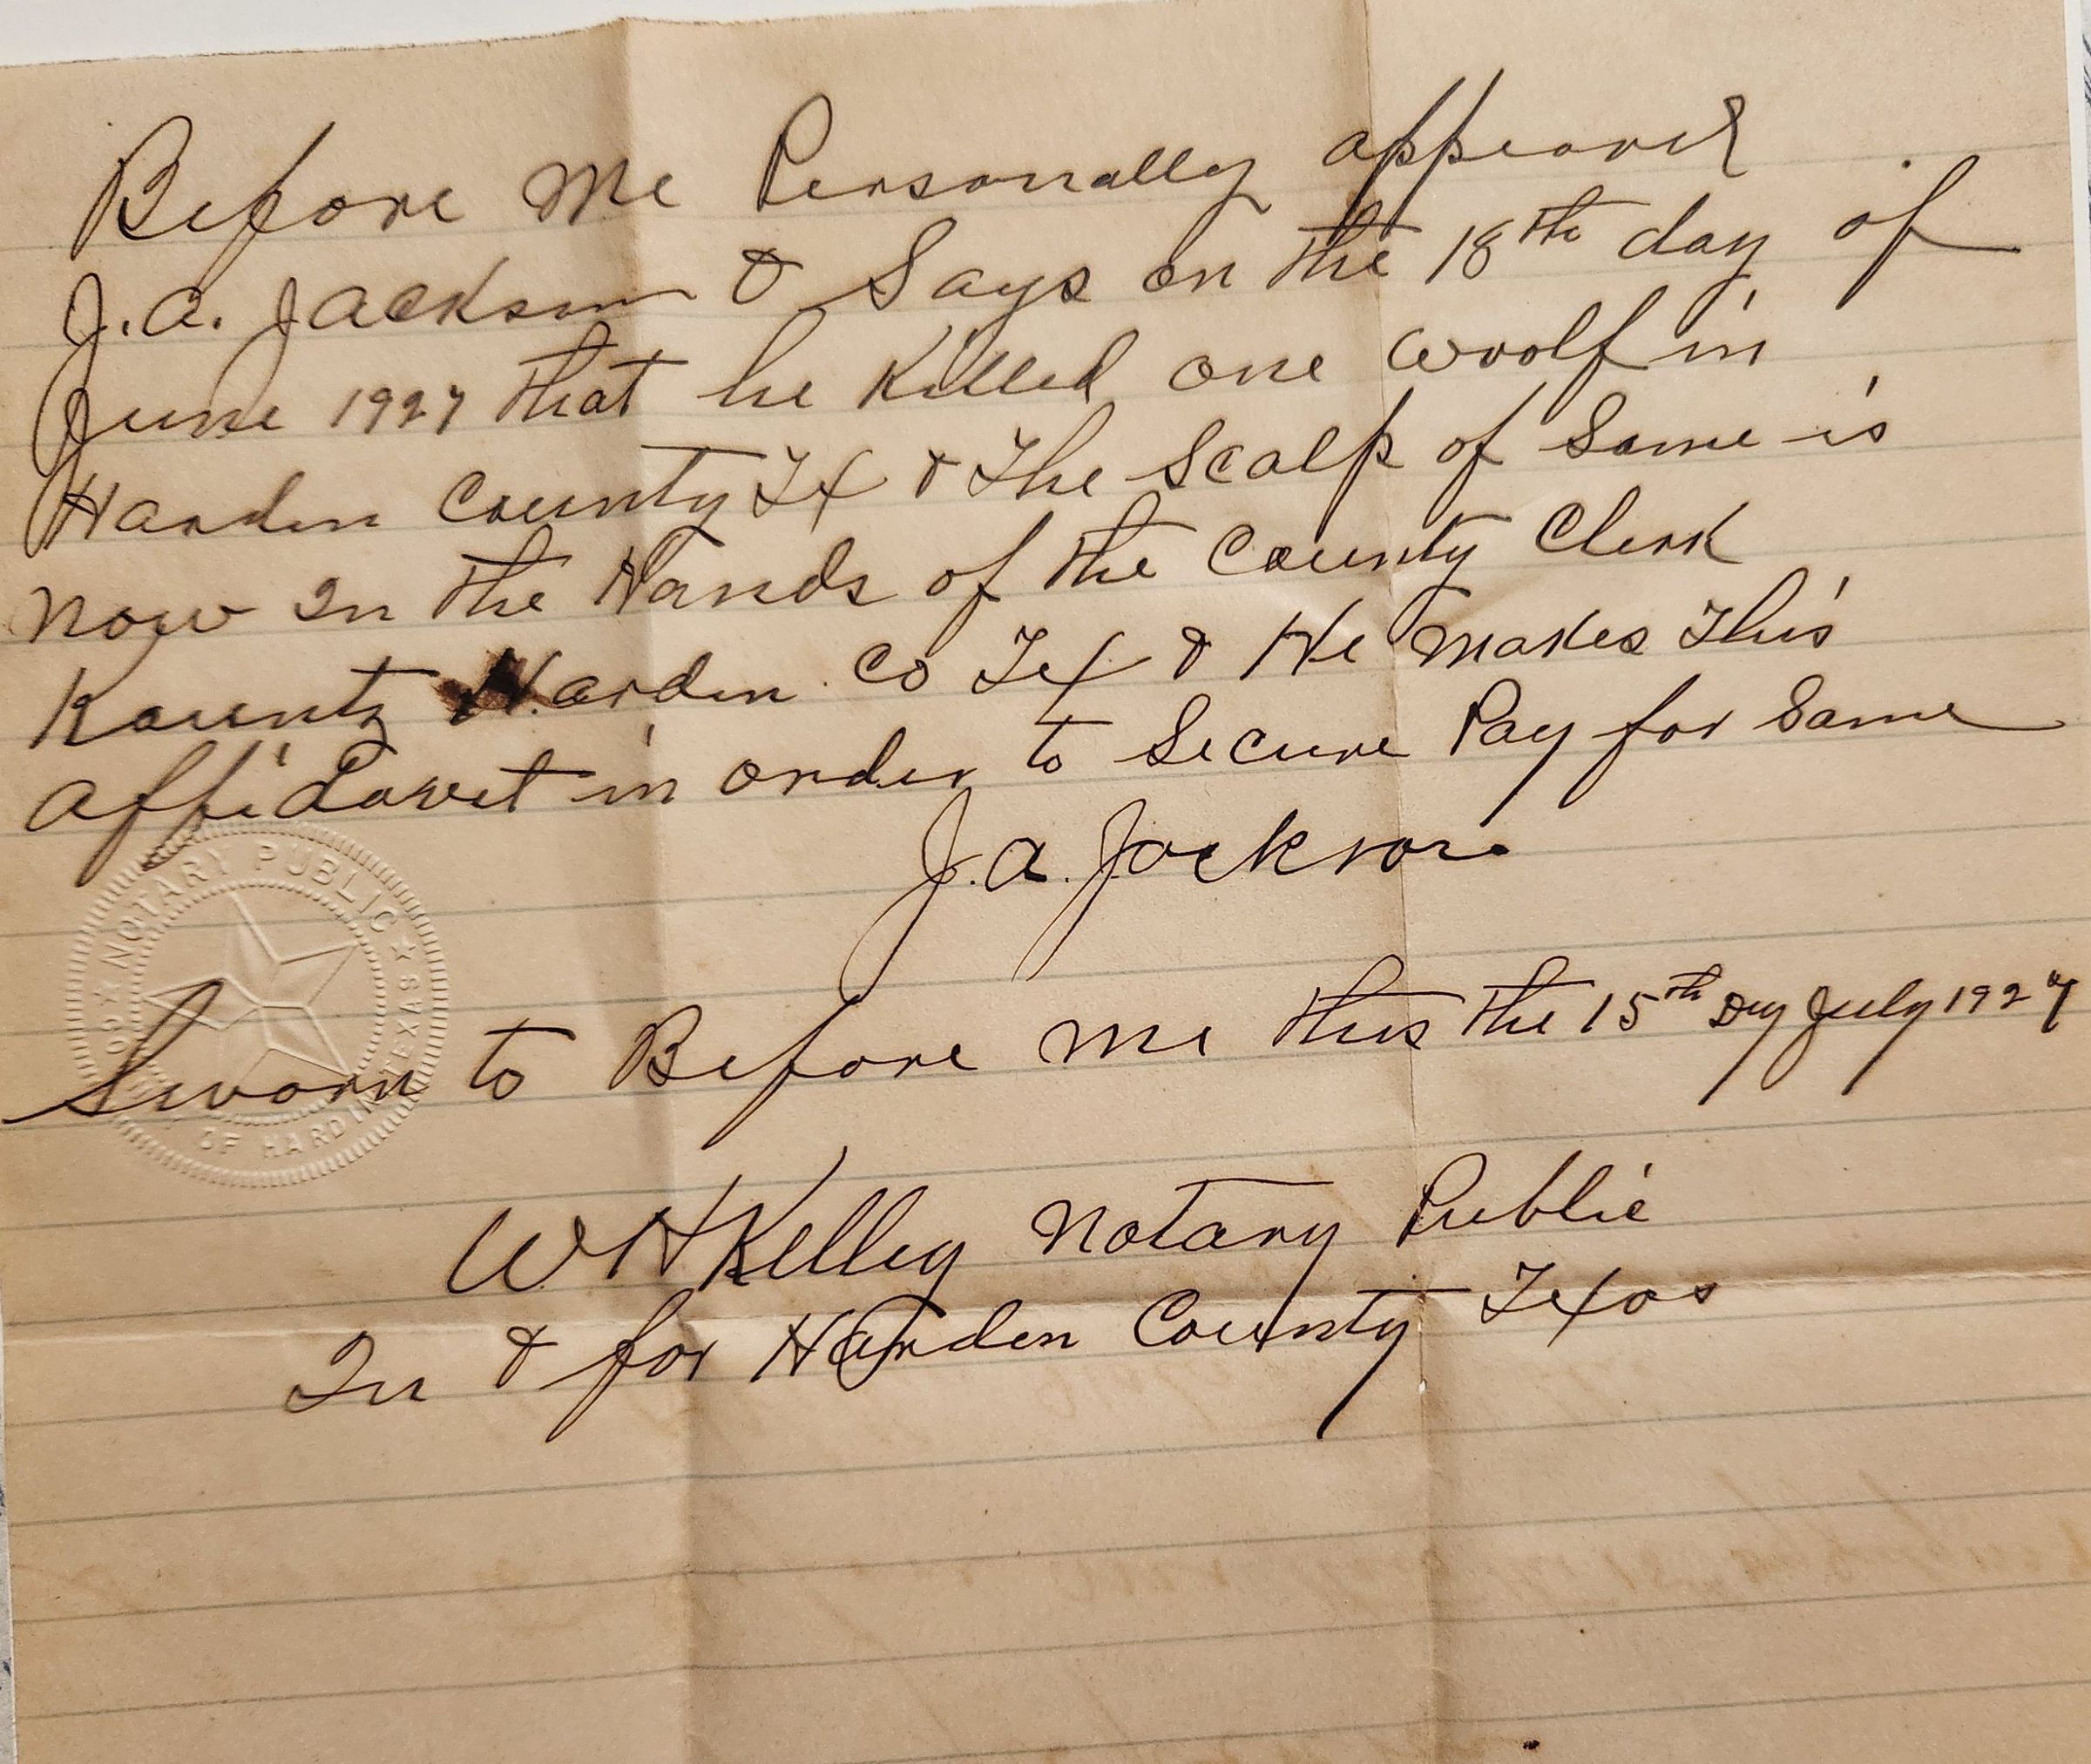 Before Me Personally appeard
J.A. Jackson & Says on the 18th day of
June 1927 that he Killed one Woolf in
Harden County Tx & The Scalp of Same is
now In the Hands of the County Clerk
Kountz Harden Co Tex & He makes This
Affidavit in order to Secure Pay for Same
J.A. Jackson
NOTARY PUBLIC
TEXAS
OF HARDIN
Sworn to Before me this the 15th Dy July 1927
W H Kelley Notary Public
In & for Harden County Texas